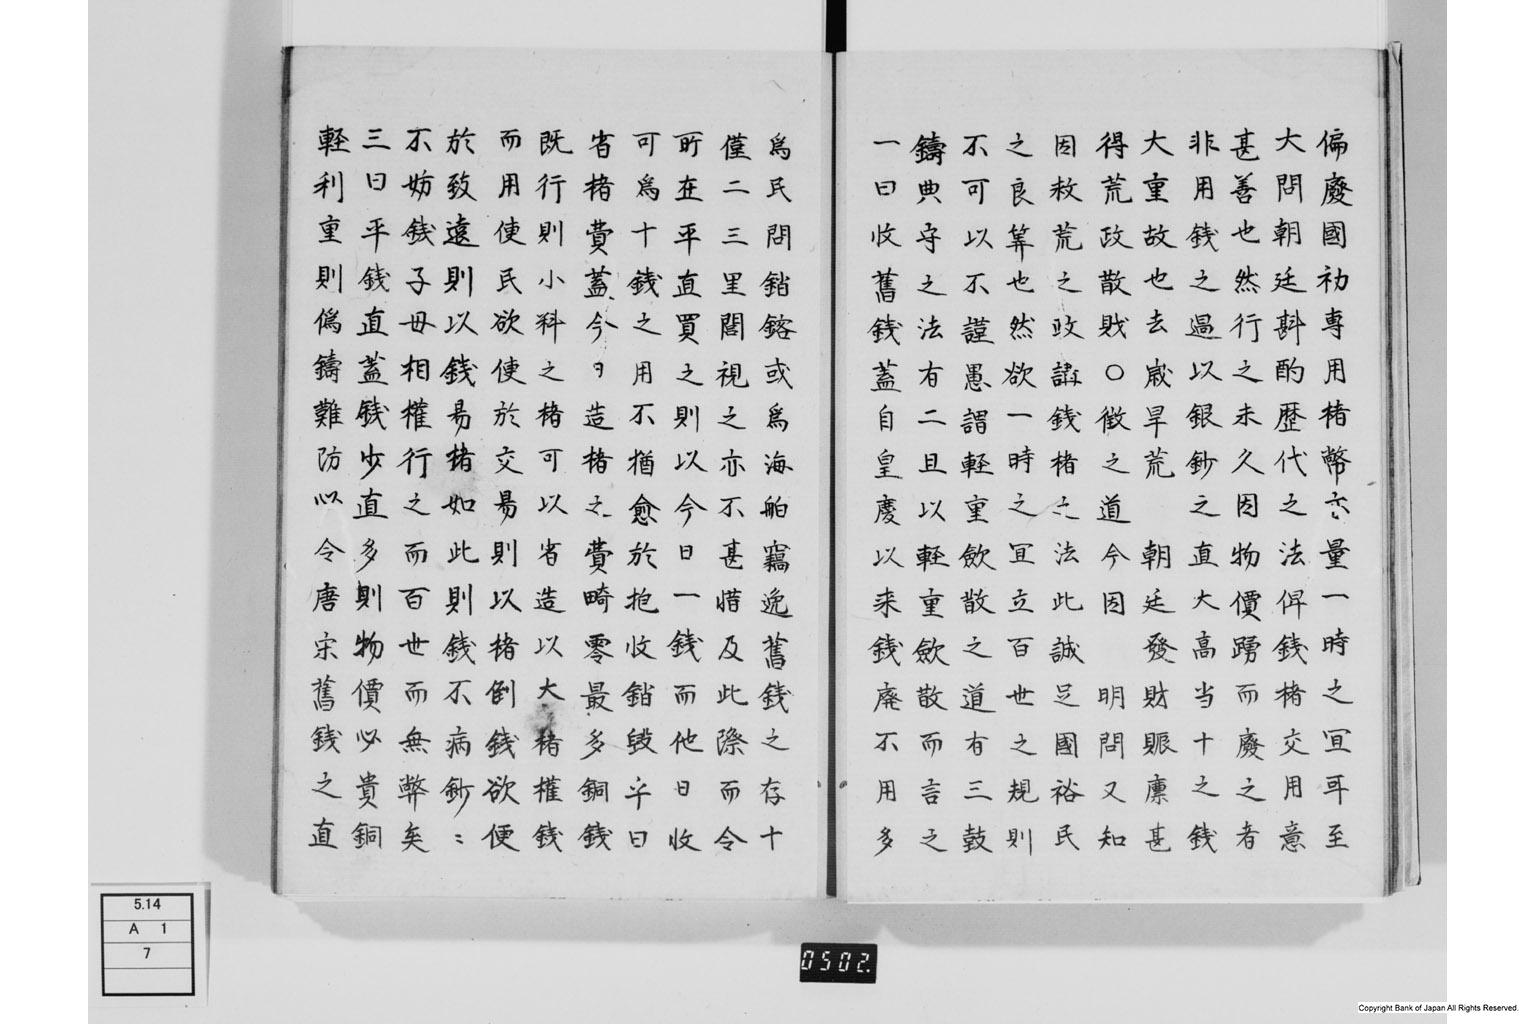 偏廢國初專用楮幣亦量一時之冝耳至
大問朝廷斟酌歴代之法俾錢楮交用意
甚善也然行之未久因物價踴而廢之者
非用錢之過以銀鈔之直大高当十之錢
大重故也去歳旱荒 朝廷發財賑廪甚
得荒政散戝〇徴之道今因 明問又知
因救荒之政講錢楮之法此誠足國裕民
之良筭也然欲一時之冝立百世之規則
不可以不謹愚謂軽重歛散之道有三鼓
鑄典守之法有二且以軽重歛散而言之
一曰收舊錢蓋自皇慶以来錢廃不用多
爲民間銷鎔或爲海舶竊逸舊錢之存十
僅二三里閭視之亦不甚惜及此際而令
所在平直買之則以今日一錢而他日收
可爲十錢之用不猶愈於抱收銷毀乎曰
省楮費蓋今日造楮之費畸零最多銅錢
既行則小料之楮可以省造以大楮權錢
而用使民欲使於交易則以楮倒錢欲便
於致遠則以錢易楮如此則錢不病鈔〻
不妨錢子母相權行之而百世而無弊矣
三曰平錢直蓋錢少直多則物價必貴銅
軽利重則僞鑄難防必令唐宋舊錢之直
5.14
A 1
7
0502.
Copyright Bank of Japan All Rights Reserved.